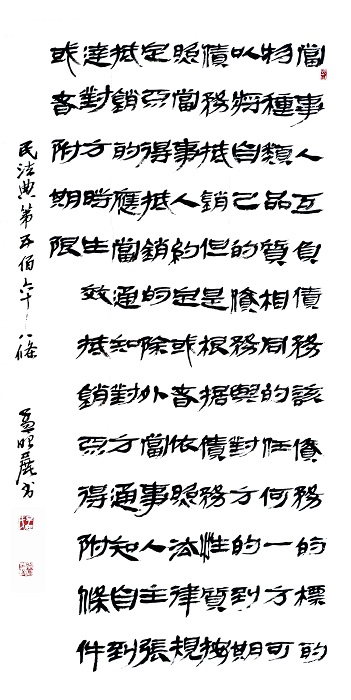 當事人互負債務該債務的標的
物種類品質相同的任何一方可
以將自己的債務與對方的到期
債務抵銷但是根据債務性質按
照當事人約定或者依照法律規
定不得抵銷的除外當事人主張
抵銷的應當通知對方通知自到
達對方時生效抵銷不得附條件
或者附期限
民法典第五佰六十八條 孟昭麗书